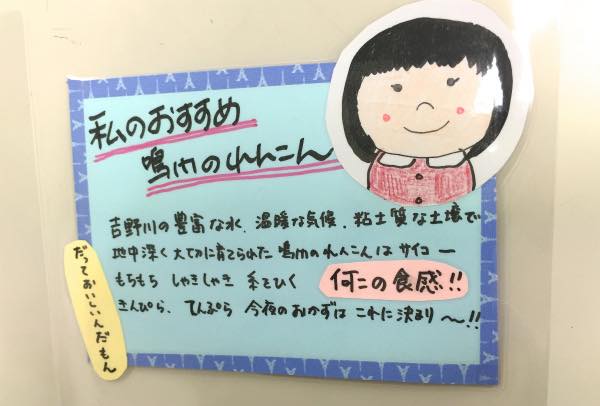 私のおすすめ
鳴門のれんこん
吉野川の豊富な水、温暖な気候、粘土質な土壌で
地中深く大切に育てられた鳴門のれんこんはサイコー
もちもち しゃきしゃき 糸をひく 何この食感!!
きんぴら、てんぷら 今夜のおかずは これに決まり〜!!
だっておいしいんだもん